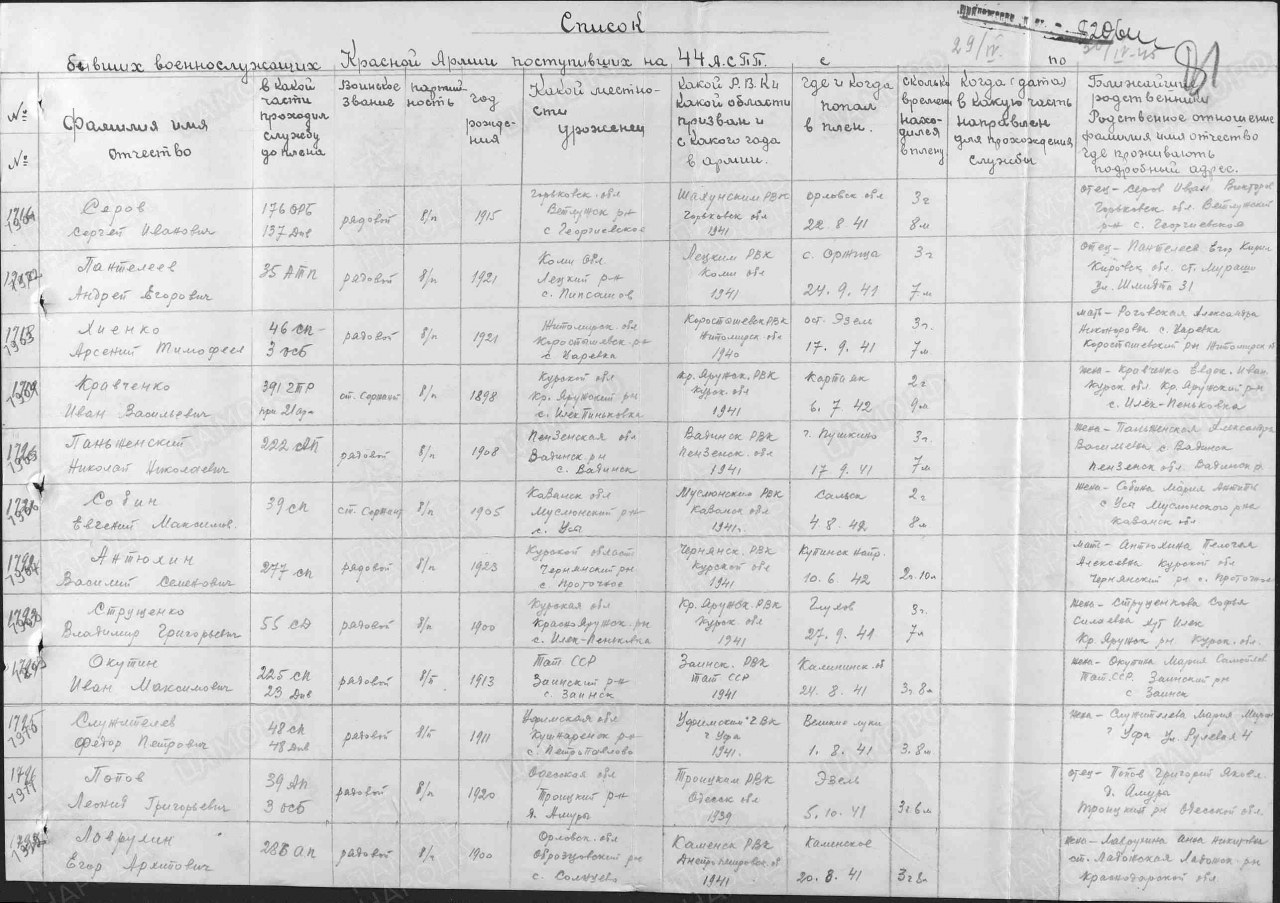 Список
29/IV
бывших военнослужащих Красной Армии поступивших на 44 А.С.П.П. с по
№ №
Фамилия имя отчество
в какой части проходил службу до плена
Воинское звание
партийность
год рождения
Какой местности уроженец
Какой Р.В.К и какой области призван и с какого года в армии.
где и когда попал в плен.
сколько времени находился в плену
Когда (дата) в какую часть направлен для прохождения службы
Ближайший родственник Родственное отношение фамилия имя отчество где проживают подробный адрес.
Серов Сергей Иванович
176 ОРБ 137 див
рядовой
б/п
1915
Горьковск. обл Ветлужск рн с Георгиевское
Шахунским РВК Горьковск обл 1941
Орловск обл 22. 8. 41
3 г 8 м
отец - Серов Иван Виктор Горьковск обл. Ветлужский рн с. Георгиевское
Пантелеев Андрей Егорович
35 АТП
рядовой
б/п
1921
Коми обл. Лецкий р-н
Лецким РВК Коми обл 1941
с. Оржица 24. 9. 41
3 г 7 м
отец - Пантелеев Егор Кировск обл. ст. Мураши Ул. Шмидта 31
Хиенко Арсений Тимофее
46 сп 3 осб
рядовой
б/п
1921
Житомирск. обл Коростышевск. рн с Царевка
Коростышевск РВК Житомирск обл 1940
ост. Эзель 17. 9. 41
3 г. 7 м
мать - Роговская Александра с. Царевка Коростышевский рн Житомирск об
Кравченко Иван Васильевич
391 при 21 ар-
ст. Сержант
б/п
1898
Курской обл Кр. Яружский рн
Кр. Яружск. РВК Курск обл. 1941
6. 7. 42
2 г 9 м
жена - Кравченко Евдок. Иван. Курск обл Кр. Яружский рн с. Илек-Пеньковка
Паньженский Николай Николаевич
222 АП
рядовой
б/п
1908
Пензенская обл Вадинск. рн с. Вадинск
Вадинск РВК Пензенск обл. 1941
г. Пушкино 17. 9. 41
3 г. 7 м
жена - Паньженская Александра с. Вадинск Пензенск обл. Вадинск р
Собин Евгений Максимов.
39 сп
ст. Сержант
б/п
1905
Казанск обл Муслюмский рн с. Усы
Муслюмским РВК Казанск обл 1941г.
Сальск 4 8. 42
2 г 8 м
жена - Собина Мария с Усы Муслюмского рн Казанск обл
Антюхин Василий Семенович
277 сп
рядовой
б/п
1923
Курской област Чернянск. рн с. Проточное
Чернянск. РВК Курской обл 1941
Купянск напр. 10. 6. 42
2г. 10м
мать - Антюхина Пелагея Алексеевна Курской обл Чернянский рн с. Проточное
Струценко Владимир Григорьевич
55 сд
рядовой
б/п
1900
Курская обл КраснояРужск. рн с. Илек-Пеньковка
Кр. Яружск. РВК Курск обл 1941
Глухов 27. 9. 41
3 г. 7 м
жена - Струценкова Софья Кр. Яружск рн Курск. обл.
Окутин Иван Максимович
225 сп 23 див
рядовой
б/п
1913
Тат ССР Заинский рн с. Заинск
Заинск. РВК Тат ССР 1941
Калининск. об 21. 8. 41
3г 8м
жена - Окутина Мария Самойлов Тат. ССР. Заинский рн с Заинск
Служителев Фёдор Петрович
48 сп 48 див
рядовой
б/п
1911
Уфимская обл Кушнаренск рн с. Петропавлово
Уфимским ГВК г Уфа 1941.
Великие луки 1. 8. 41
3. 8 м
жена - Служителева Мария г Уфа Ул Рулевая 4
Попов Леонид Григорьевич
39 АП 3 осб
рядовой
б/п
1920
Одесская обл Троицкий р-н д. Амуры
Троицким РВК Одесск обл 1939
Эзель 5. 10. 41
3г 6м
отец - Попов Григорий Яковл. д. Амура Троицкий рн Одесской обл.
Лаврулин Егор Архипович
288 АП
рядовой
б/п
1900
Орловск. обл с. Солнцево
Каменск РВК Днепропетровск об 1941
Каменское 20. 8. 41
3г 8м
жена - Лаврулина Анна Никифоровна ст. Ладожская Ладожск рн Краснодарской обл